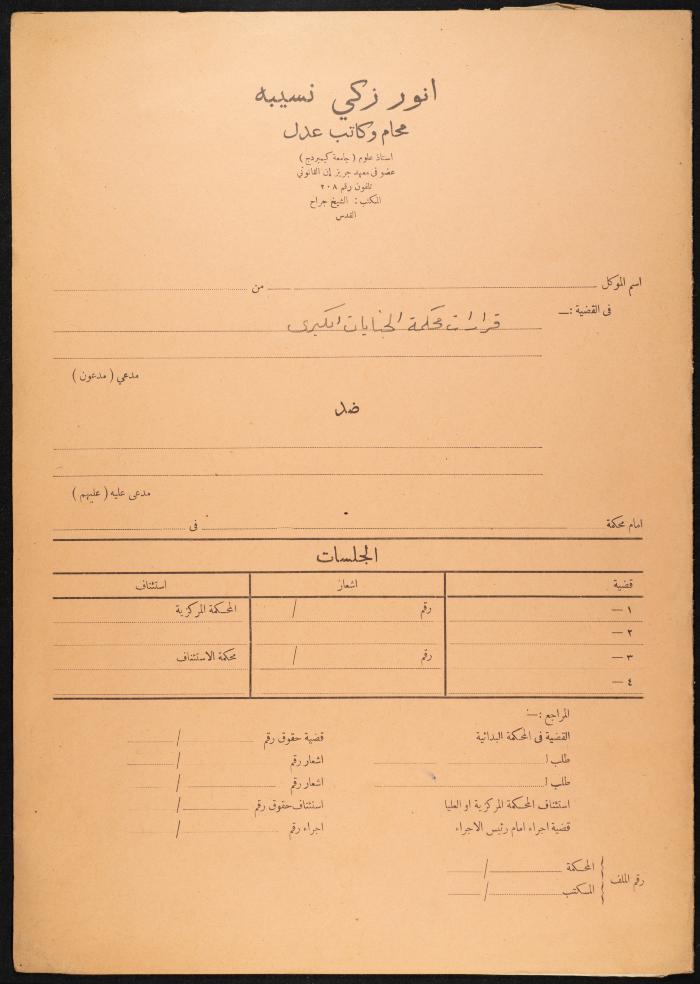 انور زكي نسيبه
محام وكاتب عدل
استاذ علوم (جامعة كيمبردج)
عضو فى معهد جريز إن القانوني
تلفون رقم ٢٠٨
المكتب : الشيخ جراح
القدس
اسم الموكل من
فى القضية :—
قرارات محكمة الجنايات الكبرى
مدعي ( مدعون )
ضد
مدعى عليه ( عليهم )
امام محكمة فى
الجلسات
قضية اشعار استئناف
١ — رقم / المحكمة المركزية
٢ —
٣ — رقم / محكمة الاستئناف
٤ —
المراجع :—
القضية فى المحكمة البدائية قضية حقوق رقم /
طلب ا اشعار رقم /
طلب ا اشعار رقم /
استئناف المحكمة المركزية او العليا استئناف حقوق رقم /
قضية اجراء امام رئيس الاجراء اجراء رقم /
رقم الملف المحكمة /
المكتب /